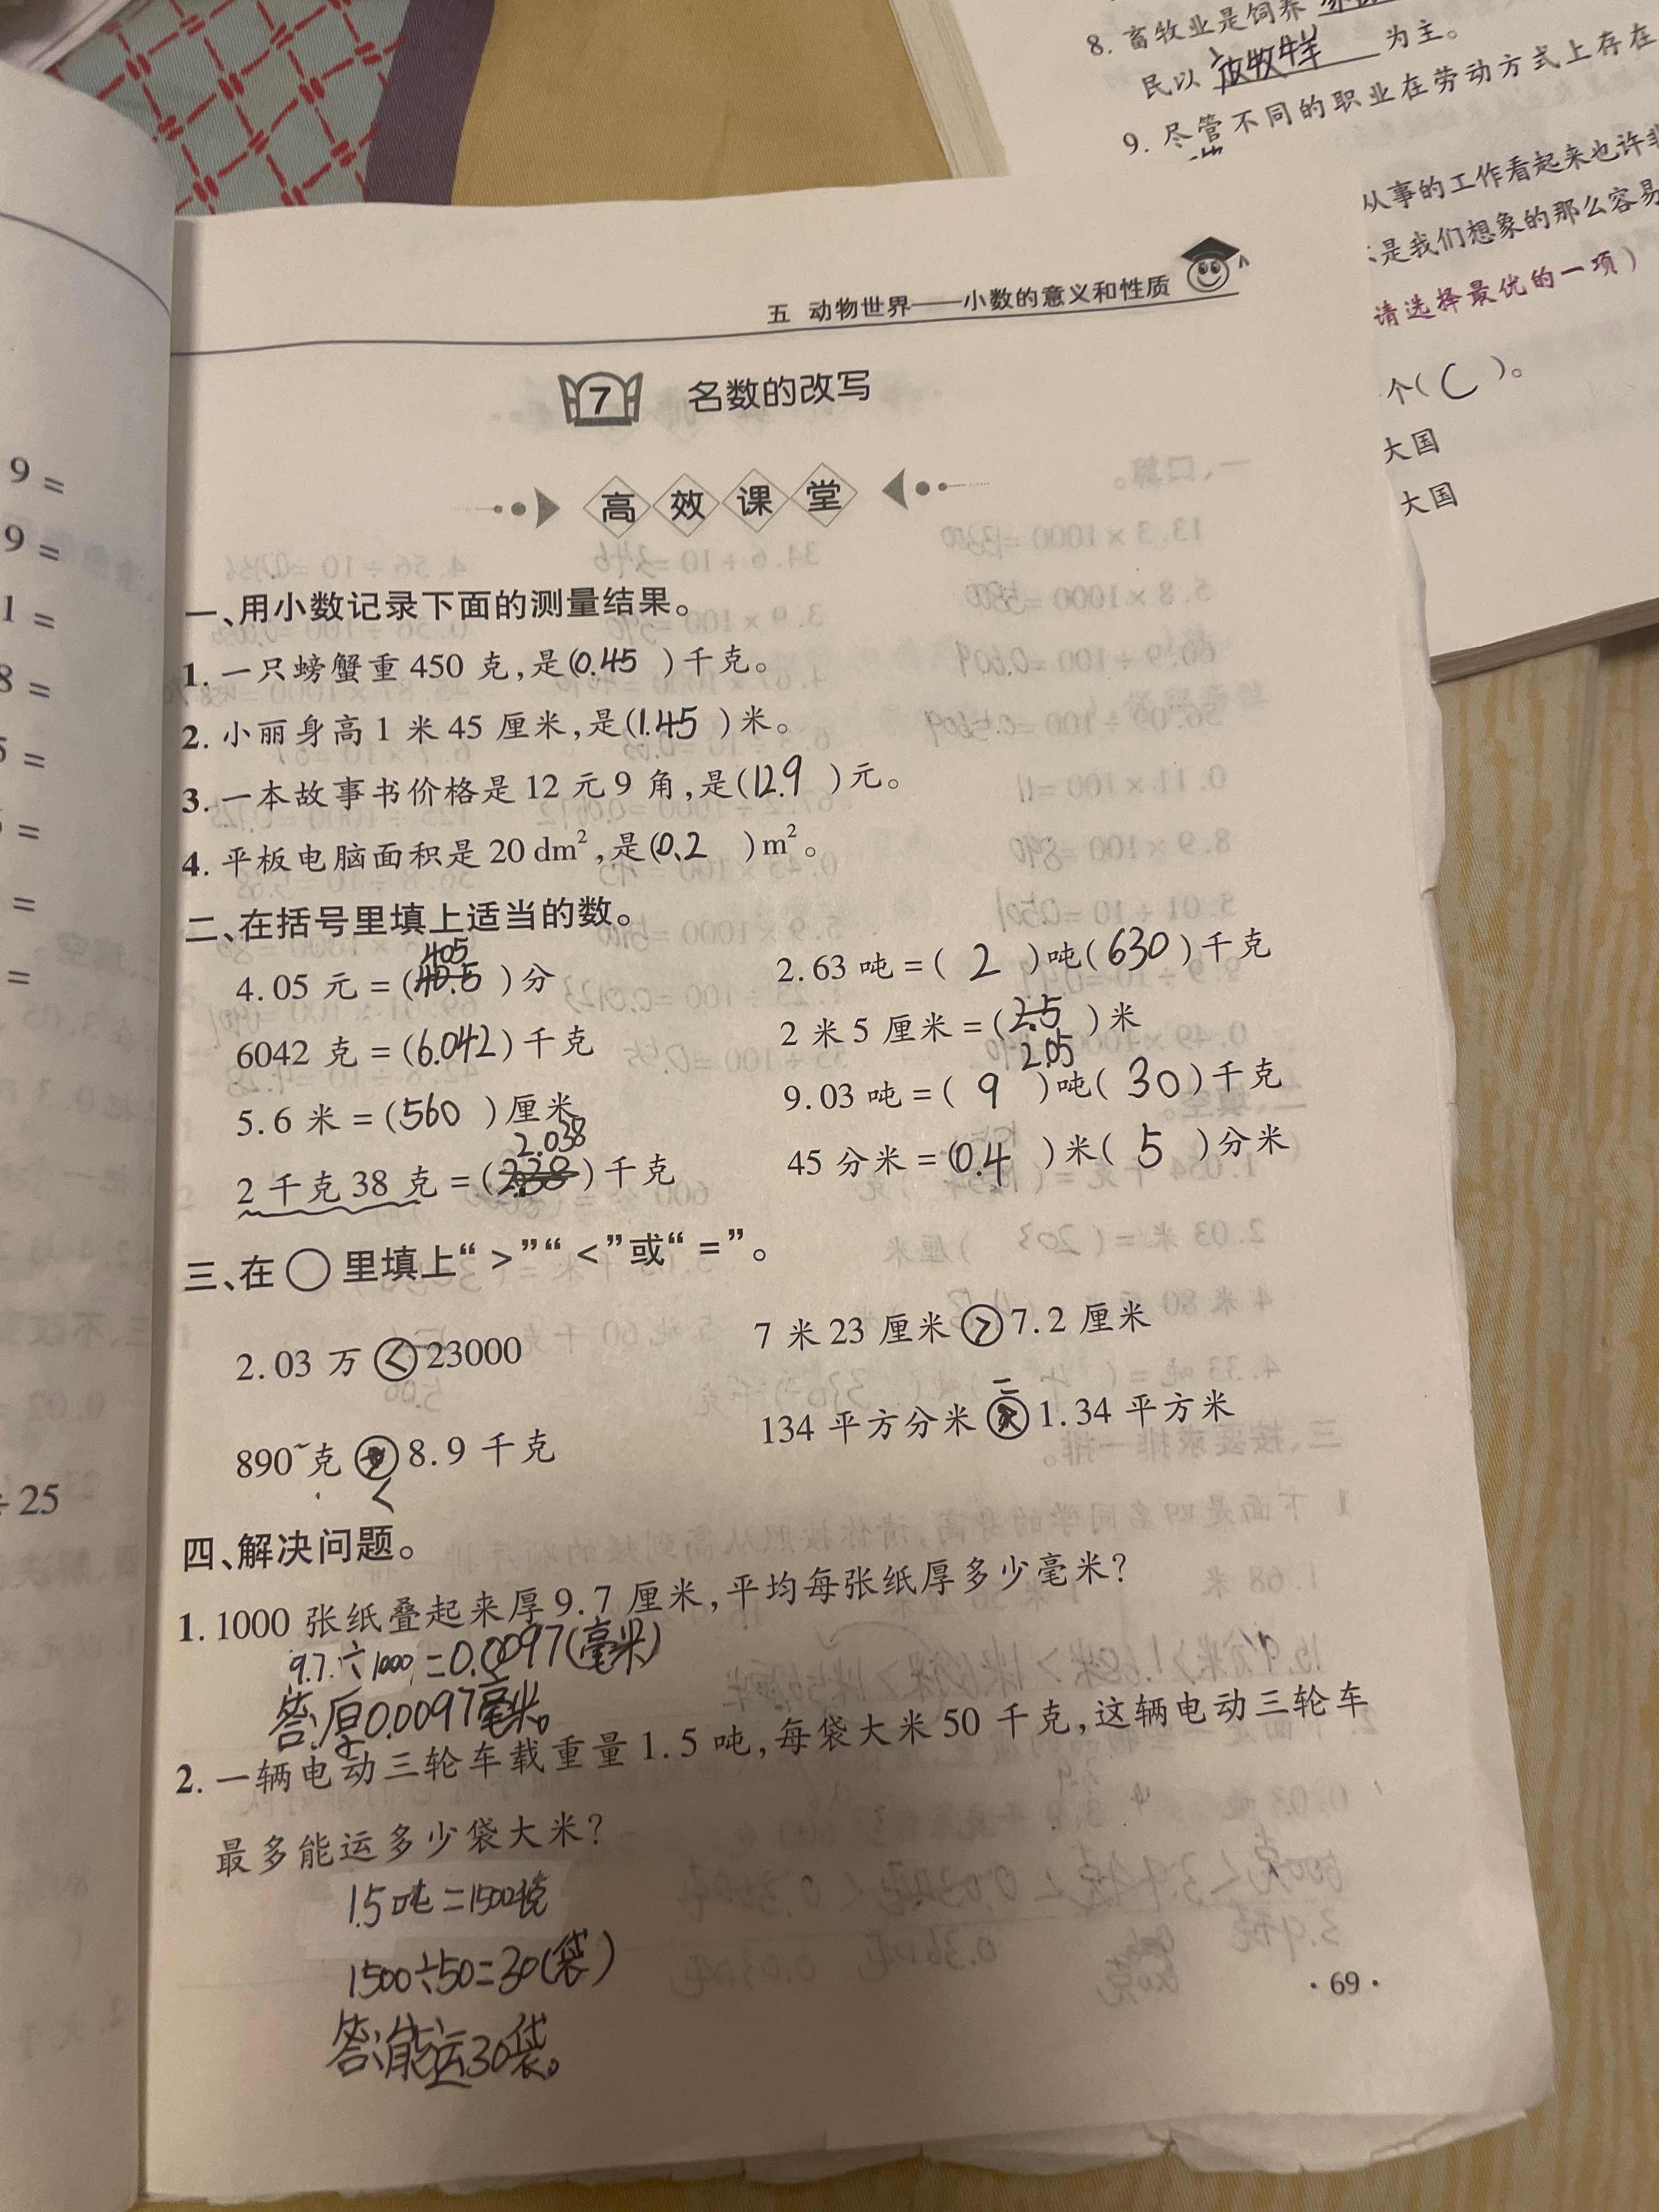 8. 畜牧业是饲养
民以 放牧羊 为主。
9. 尽管不同的职业在劳动方式上存在
从事的工作看起来也许非
是我们想象的那么容易
请选择最优的一项)
个(C)。
大国
大国
9 =
9 =
1 =
8 =
5 =
=
=
=
÷ 25
五 动物世界——小数的意义和性质
7 名数的改写
高效课堂
一、用小数记录下面的测量结果。
1. 一只螃蟹重 450 克,是(0.45)千克。
2. 小丽身高 1 米 45 厘米,是(1.45)米。
3. 一本故事书价格是 12 元 9 角,是(12.9)元。
4. 平板电脑面积是 20 dm²,是(0.2)m²。
二、在括号里填上适当的数。
405
4.05 元 = (40.5)分 2.63 吨 = (2)吨(630)千克
6042 克 = (6.042)千克 2 米 5 厘米 = (2.5)米
2.05
5.6 米 = (560)厘米 9.03 吨 = (9)吨(30)千克
2.038
2 千克 38 克 = (2.38)千克 45 分米 = (0.4)米(5)分米
三、在 ○ 里填上“ > ”“ < ”或“ = ”。
2.03 万 < 23000 7 米 23 厘米 > 7.2 厘米
=
890 克 8.9 千克 134 平方分米 1.34 平方米
<
四、解决问题。
1. 1000 张纸叠起来厚 9.7 厘米,平均每张纸厚多少毫米?
9.7÷1000=0.0097(毫米)
答:厚0.0097毫米。
2. 一辆电动三轮车载重量 1.5 吨,每袋大米 50 千克,这辆电动三轮车
最多能运多少袋大米?
1.5吨=1500千克
1500÷50=30(袋)
答:能运30袋。
· 69 ·